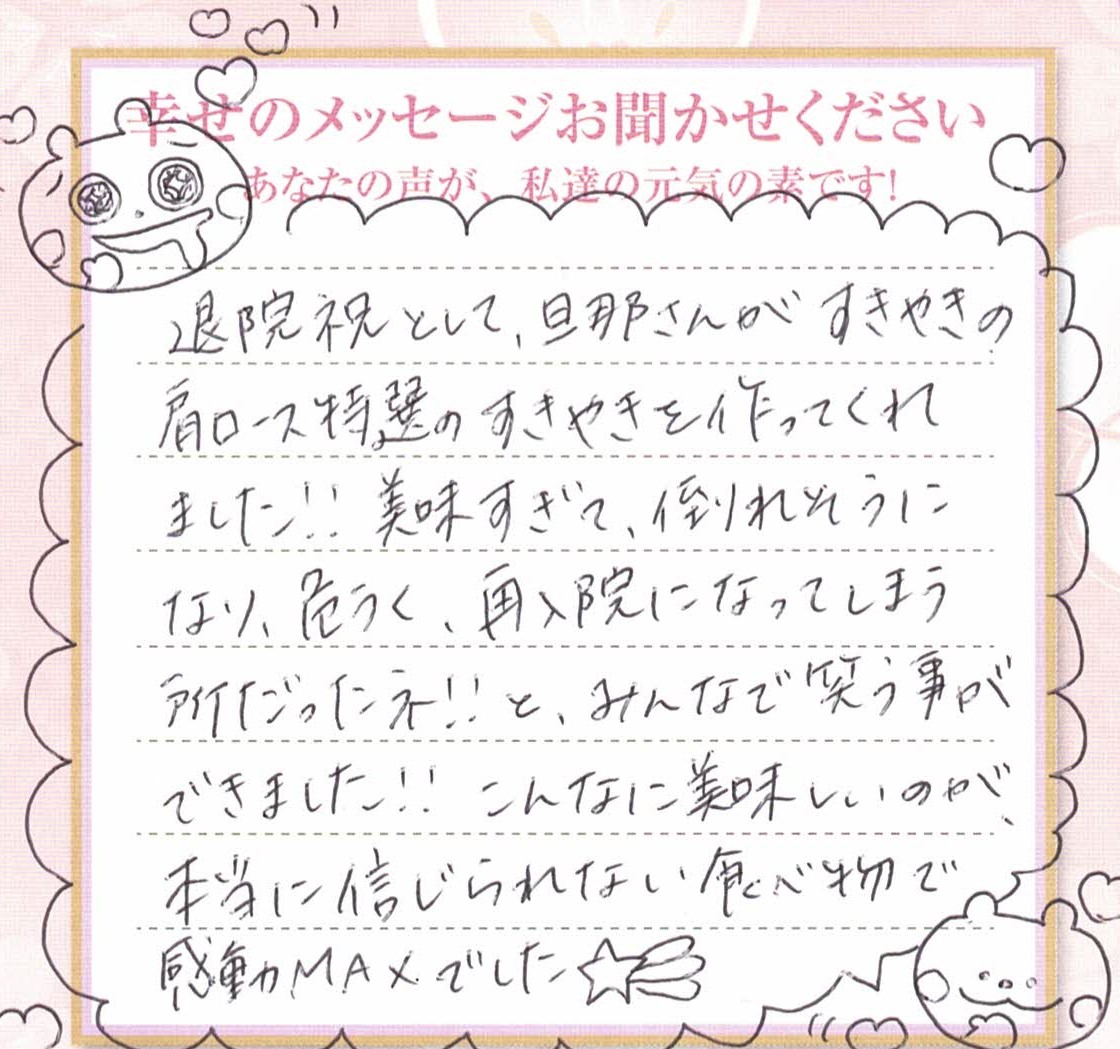 幸せのメッセージお聞かせください
あなたの声が、私達の元気の素です!
退院祝として、旦那さんがすきやきの
肩ロース特選のすきやきを作ってくれ
ました!! 美味すぎて、倒れそうに
なり、危うく、再入院になってしまう
所だったネ!! と、みんなで笑う事が
できました!! こんなに美味しいのが、
本当に信じられない食べ物で
感動MAXでした☆